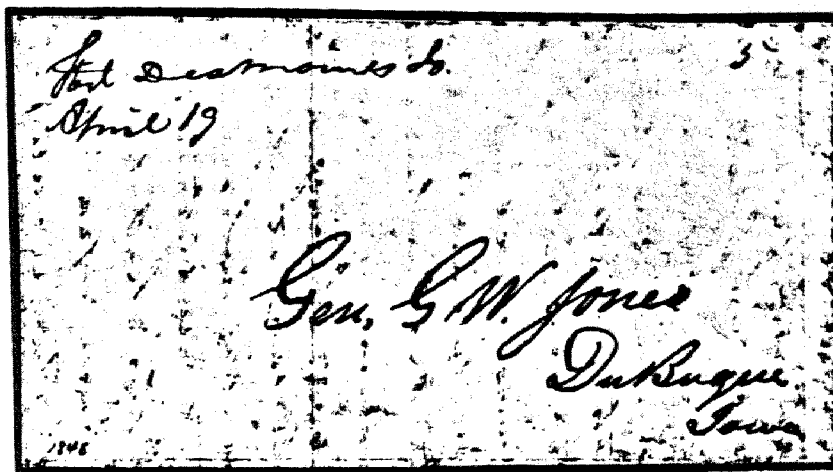 Fort Desmoines Io. 5
April 19
Gen, G W. Jones
DuBuque
Iowa
1848